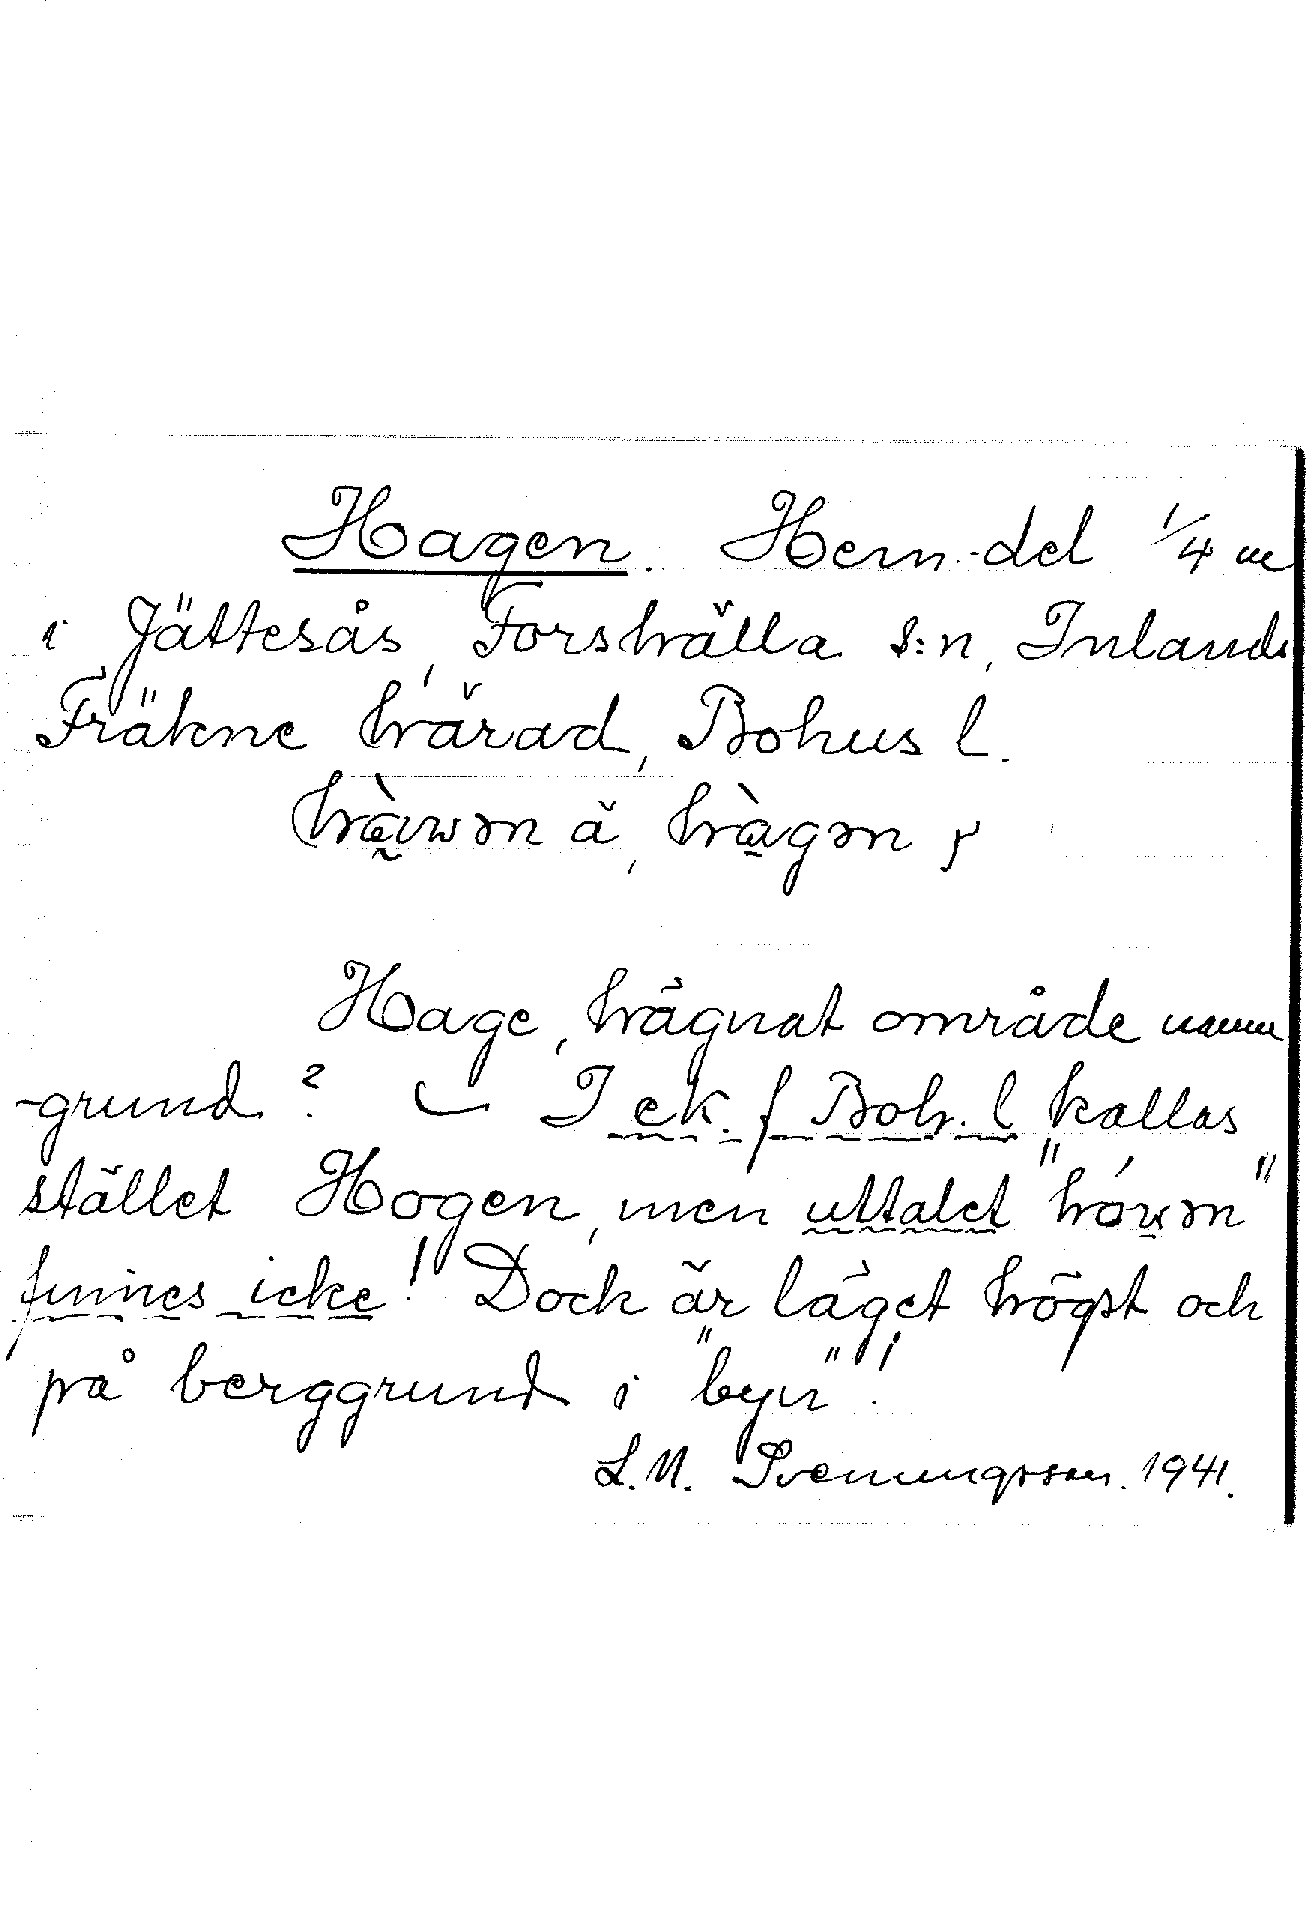 Hagen. Hem.-del 1/4 m
i Jättesås, Forshälla s:n, Inlands
Fräkne härad, Bohus l.
hàwən ä, hàgən y
Hage, hägnat område namn
-grund? – I ek. f Boh. l kallas
stället Hogen, men uttalet "hówən"
finnes icke! Dock är läget högst och
på berggrund i "byn"!
L.N. Svenungsson. 1941.